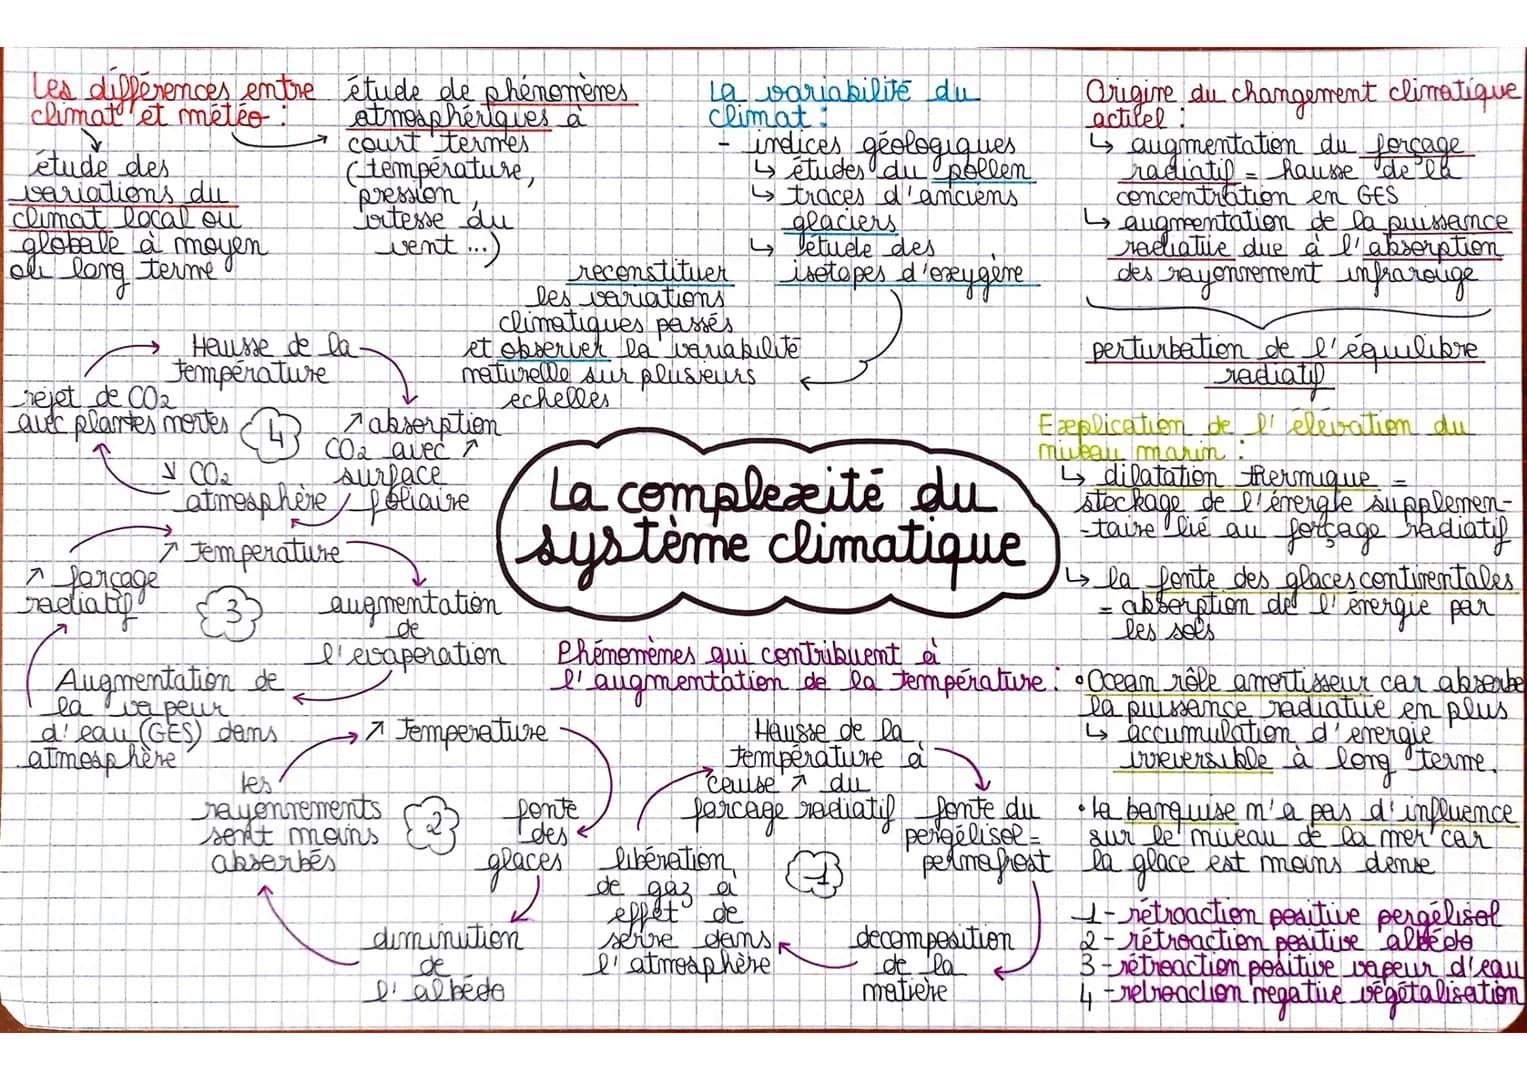 Les différences entre
climat et météo :
étude des
variations du
climat local ou
globale à moyen
ou long terme
étude de phénomènes
atmosphériques à
court termes
(température,
pression,
vitesse du
vent ...)
La variabilité du
climat :
- indices géologiques
↳ études du pollen
↳ traces d'anciens
glaciers
↳ étude des
isotopes d'oxygène
reconstituer
les variations
climatiques passés
et observer la variabilité
naturelle sur plusieurs
echelles
Origine du changement climatique
actuel :
↳ augmentation du forçage
radiatif = hausse de la
concentration en GES
↳ augmentation de la puissance
radiative due à l'absorption
des rayonnement infrarouge
perturbation de l'équilibre
radiatif
Hausse de la
température
↗ absorption
CO2 avec ↗
surface
foliaire
↘ CO2
atmosphère
rejet de CO2
avec plantes mortes
4
La complexité du
système climatique
Explication de l'élévation du
niveau marin :
↳ dilatation thermique =
stockage de l'énergie supplemen-
-taire lié au forçage radiatif
↳ la fonte des glaces continentales
= absorption de l'énergie par
les sols
• Ocean rôle amortisseur car absorbe
la puissance radiative en plus
↳ accumulation d'energie
irreversible à long terme.
• la banquise n'a pas d'influence
sur le niveau de la mer car
la glace est moins dense
↗ Temperature
augmentation
de
l'evaporation
Augmentation de
la vapeur
d'eau (GES) dans
atmosphère
↗ forçage
radiatif
3
Phénomènes qui contribuent à
l'augmentation de la température :
↗ Temperature
fonte
des
glaces
diminution
de
l'albédo
les
rayonnements
sont moins
absorbés
2
Hausse de la
température à
cause ↗ du
forcage radiatif
fonte du
pergélisol =
permafrost
decomposition
de la
matière
libération
de gaz à
effet de
serre dans
l'atmosphère
1
1-rétroaction positive pergélisol
2-rétroaction positive albédo
3-rétroaction positive vapeur d'eau
4-retroaction negative végétalisation